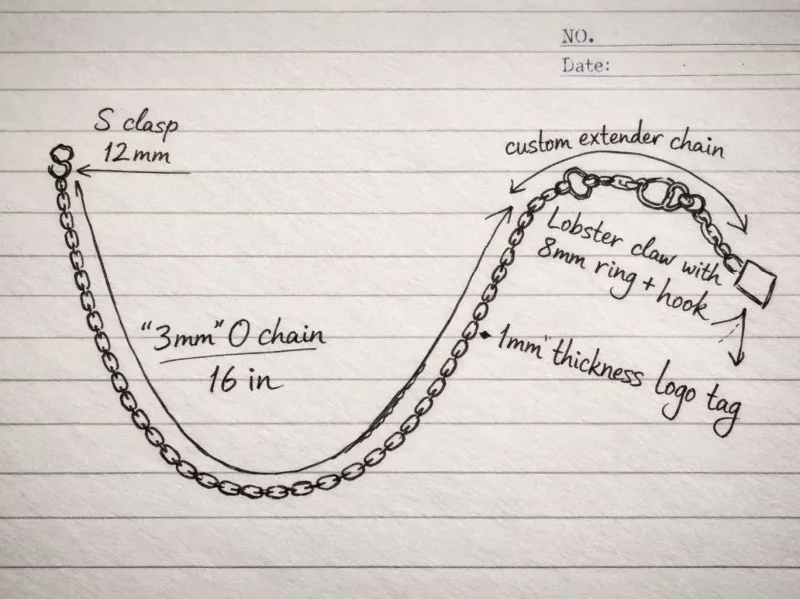 NO.
Date:
S clasp
12mm
custom extender chain
Lobster claw with
8mm ring + hook
"3mm" O chain
16 in
1mm" thickness logo tag